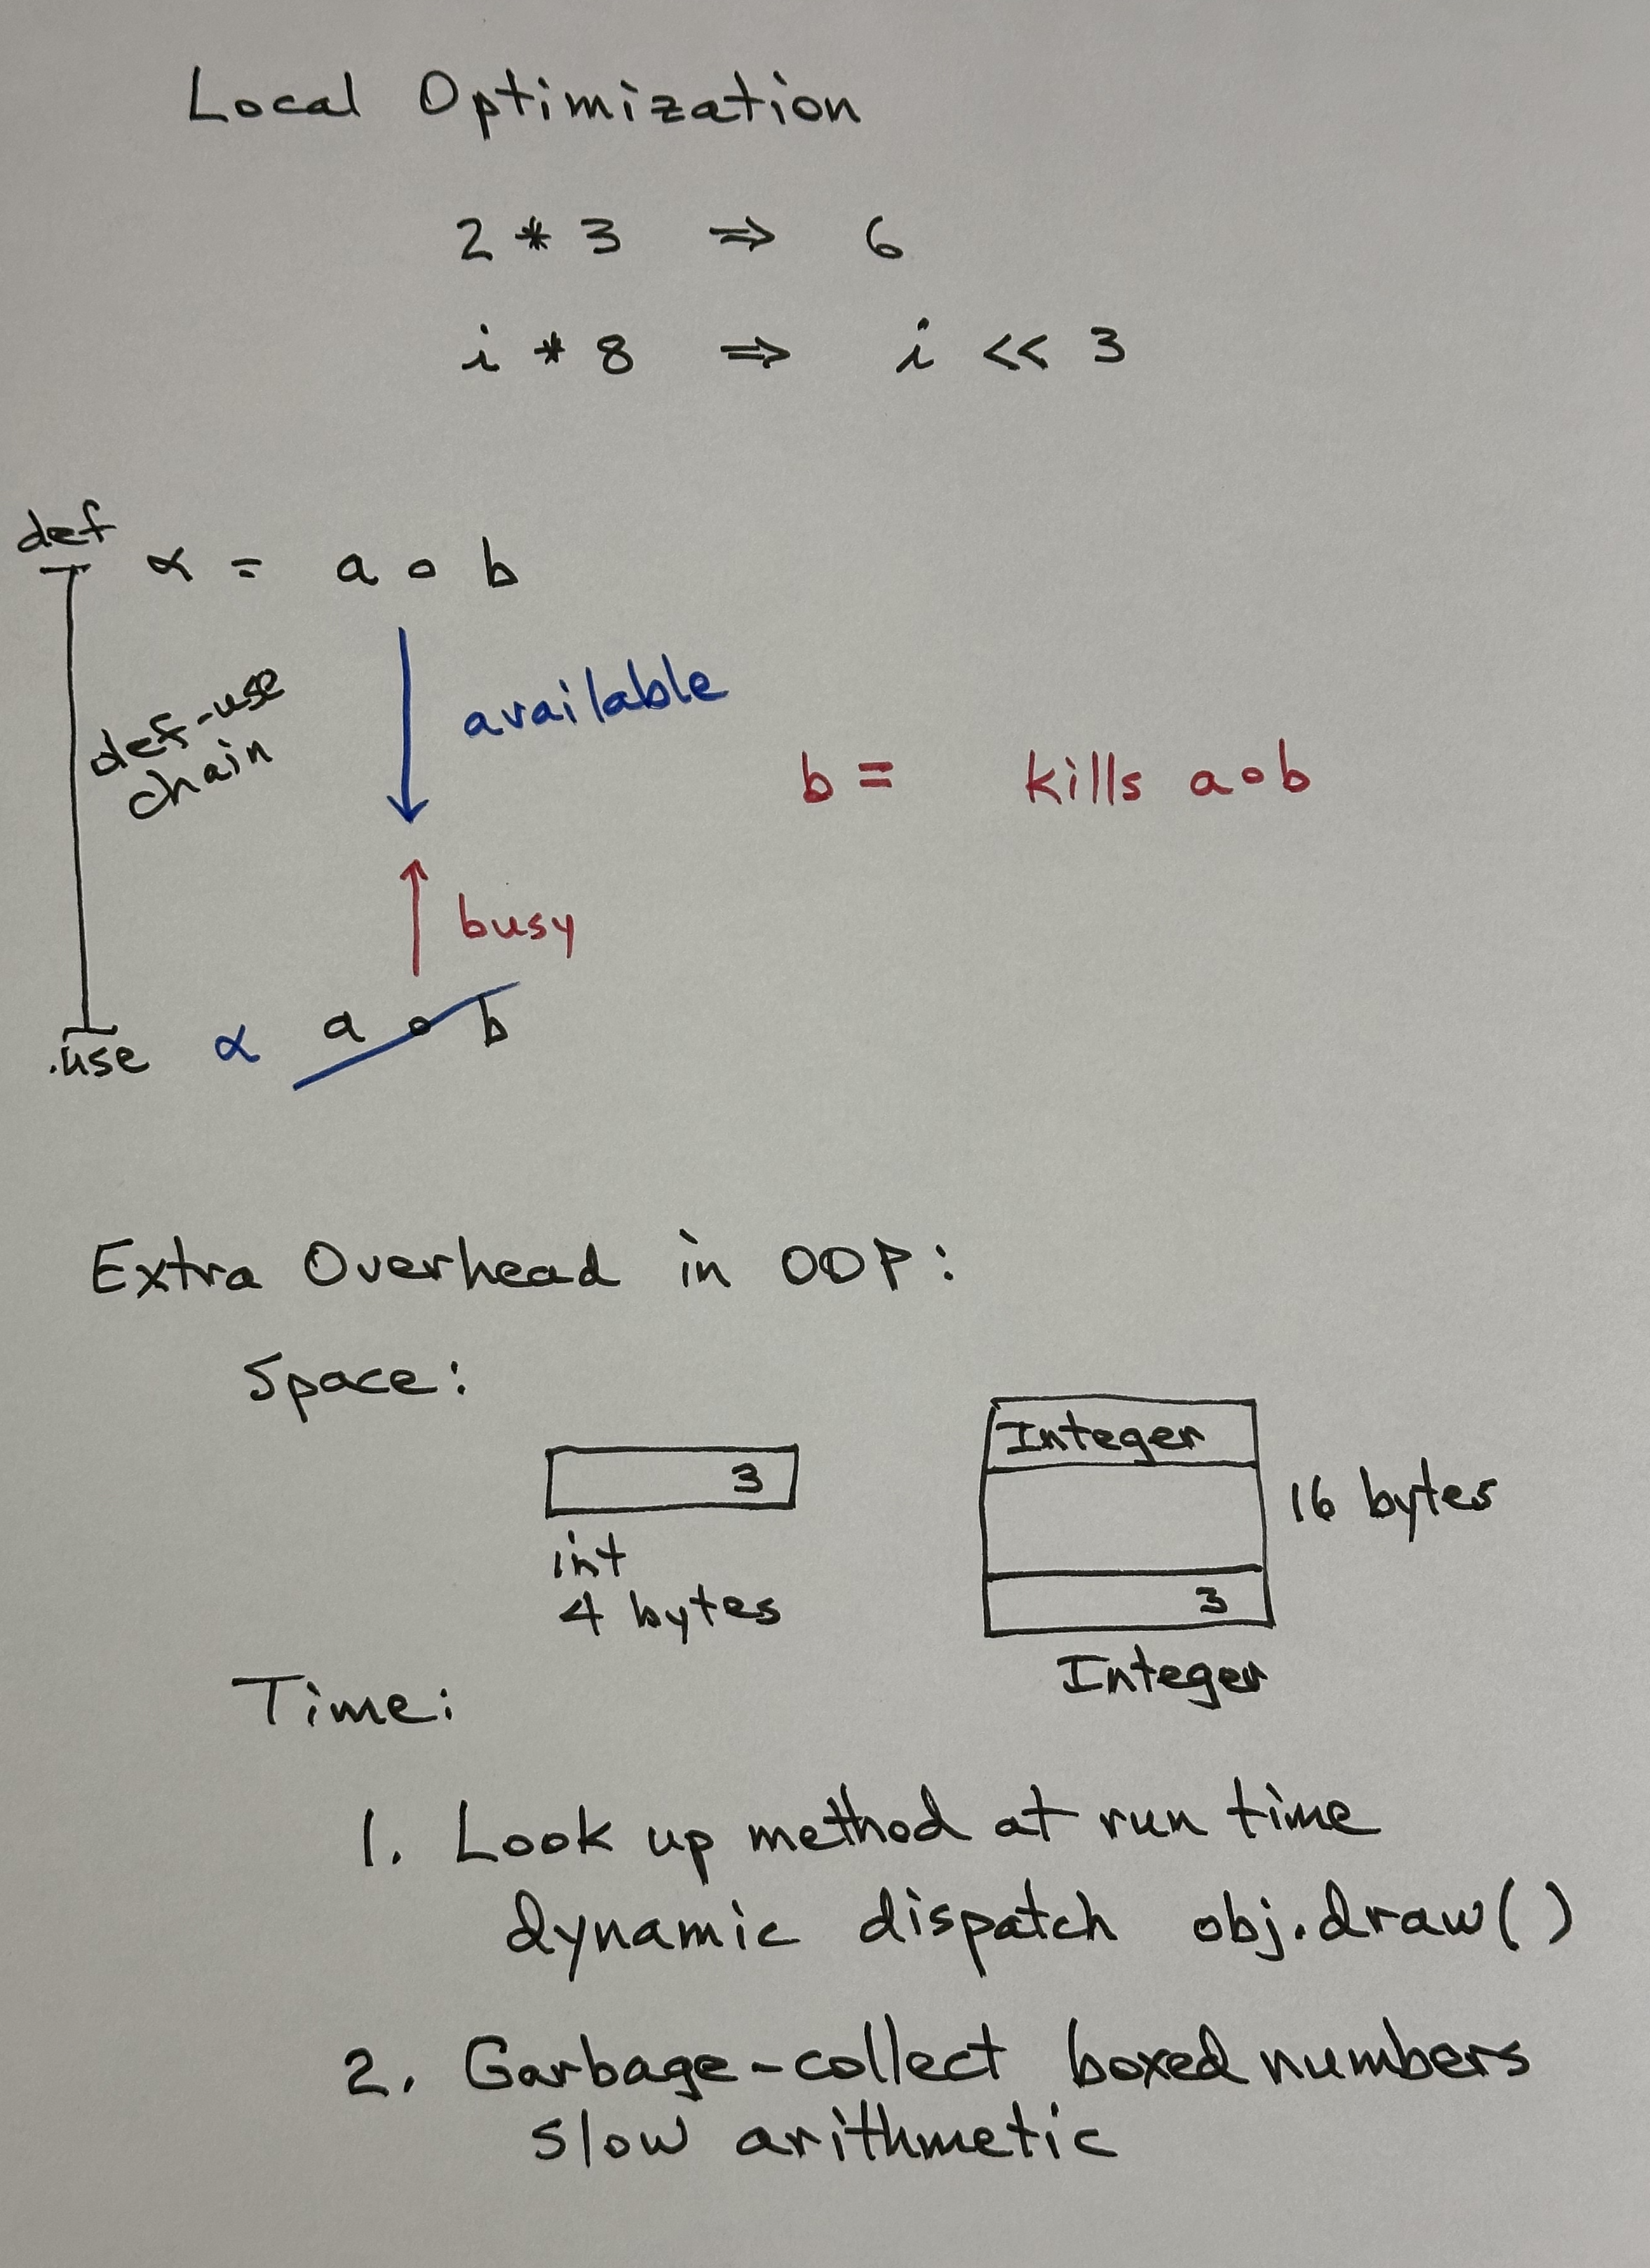 Local Optimization
2 * 3 ⇒ 6
i * 8 ⇒ i << 3
def
α = a ∘ b
def-use
chain
available
b = kills a∘b
busy
use α a ∘ b
Extra Overhead in OOP:
Space:
3
int
4 bytes
Integer
16 bytes
3
Integer
Time:
1. Look up method at run time
dynamic dispatch obj.draw()
2. Garbage-collect boxed numbers
slow arithmetic